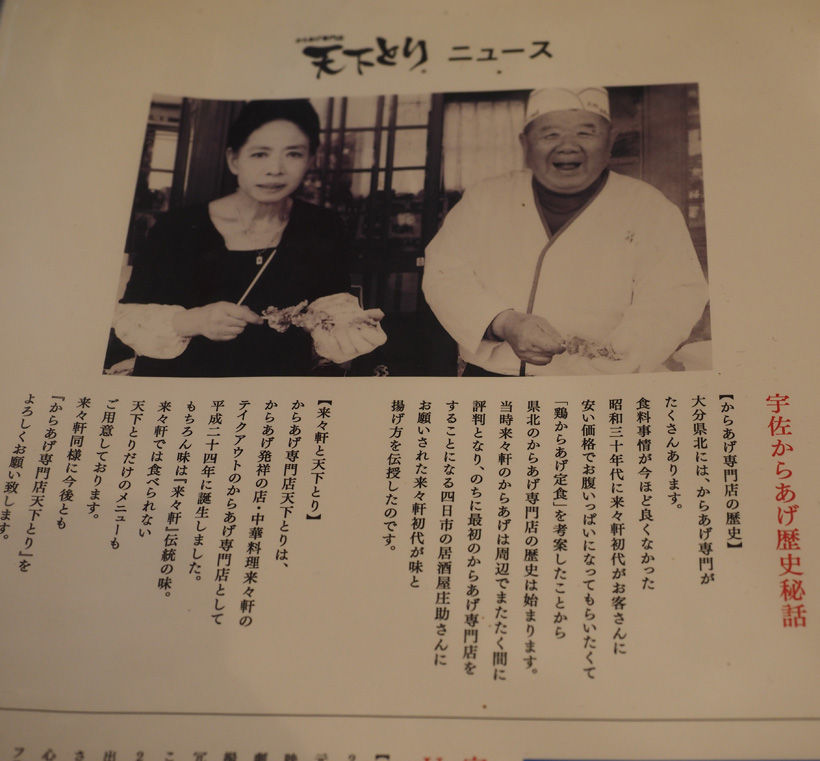 からあげ専門店
天下とり ニュース
宇佐からあげ歴史秘話
【からあげ専門店の歴史】
大分県北には、からあげ専門が
たくさんあります。
食料事情が今ほど良くなかった
昭和三十年代に来々軒初代がお客さんに
安い価格でお腹いっぱいになってもらいたくて
「鶏からあげ定食」を考案したことから
県北のからあげ専門店の歴史は始まります。
当時来々軒のからあげは周辺でまたたく間に
評判となり、のちに最初のからあげ専門店を
することになる四日市の居酒屋庄助さんに
お願いされた来々軒初代が味と
揚げ方を伝授したのです。
【来々軒と天下とり】
からあげ専門店天下とりは、
からあげ発祥の店・中華料理来々軒の
テイクアウトのからあげ専門店として
平成二十四年に誕生しました。
もちろん味は『来々軒』伝統の味。
来々軒では食べられない
天下とりだけのメニューも
ご用意しております。
来々軒同様に今後とも
『からあげ専門店天下とり』を
よろしくお願い致します。